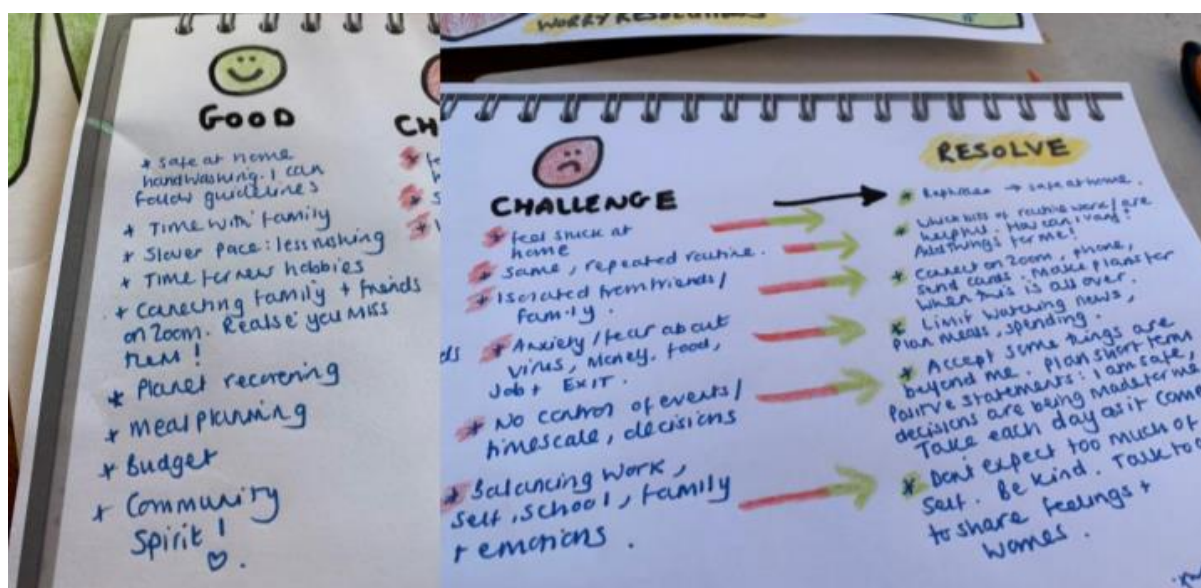 GOOD
* Safe at home
handwashing. I can
follow guidelines
* Time with family
* Slower pace: less rushing
* Time for new hobbies
* Connecting family + friends
on Zoom. Realise you miss
them!
* Planet recovering
* Meal planning
* Budget
* Community
Spirit!
CH
WORRY RESOLUTIONS
CHALLENGE
* feel stuck at
home
* Same, repeated routine.
* Isolated from friends/
family.
* Anxiety/fear about
virus, money, food,
Job + EXIT.
* No control of events/
timescale, decisions
* Balancing work,
self, school, family
+ emotions.
RESOLVE
* Rephrase → safe at home.
* Which bits of routine work/are
helpful. How can I vary?
Add things for me!
* Connect on Zoom, phone,
send cards. Make plans for
when this is all over.
* Limit watching news,
Plan meals, spending.
* Accept some things are
beyond me. Plan short term
Positive statements: I am safe,
decisions are being made for me
Take each day as it com
* Dont expect too much of
self. Be kind. Talk to
to share feelings +
worries.